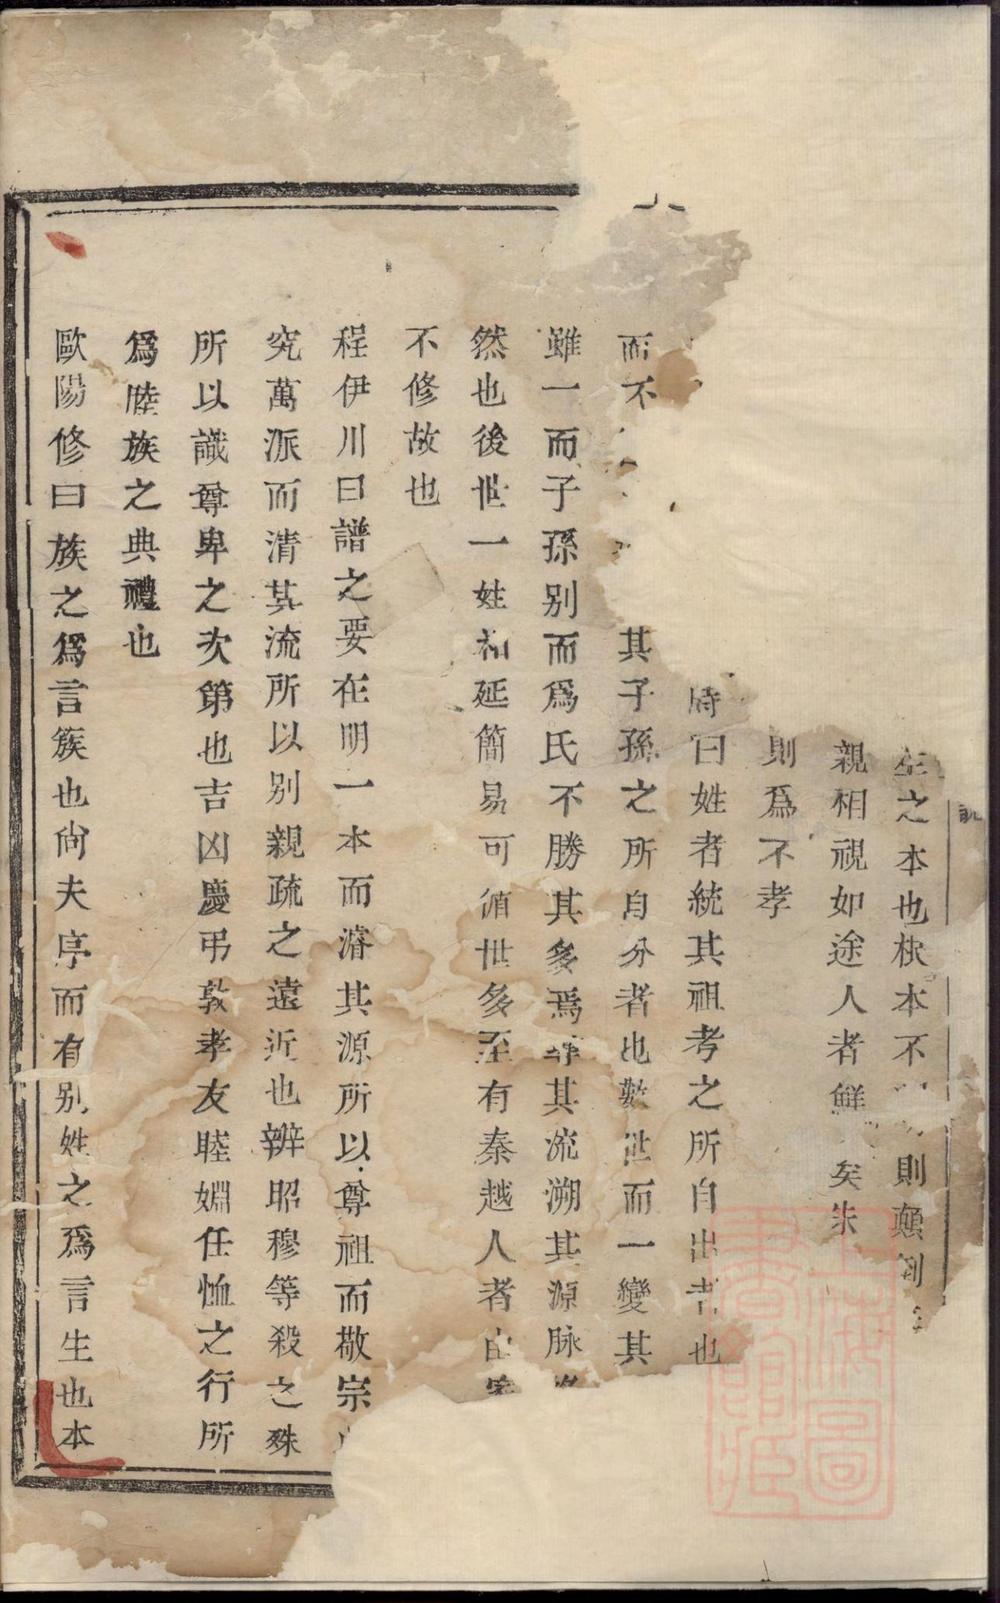 之本也根本不則顛倒
親相視如途人者鮮矣朱
則爲不孝
時曰姓者統其祖考之所自出者也
而不其子孫之所自分者也數世而一變其
雖一而子孫別而爲氏不勝其多焉尋其流溯其源脉
然也後世一姓相延簡易可循世多至有秦越人者由
不修故也
程伊川曰譜之要在明一本而濬其源所以尊祖而敬宗
究萬派而清其流所以別親疏之遠近也辨昭穆等殺之殊
所以識尊卑之次第也吉凶慶弔敦孝友睦婣任恤之行所
爲睦族之典禮也
歐陽修曰族之爲言簇也尙夫序而有別姓之爲言生也本
上海圖書館藏